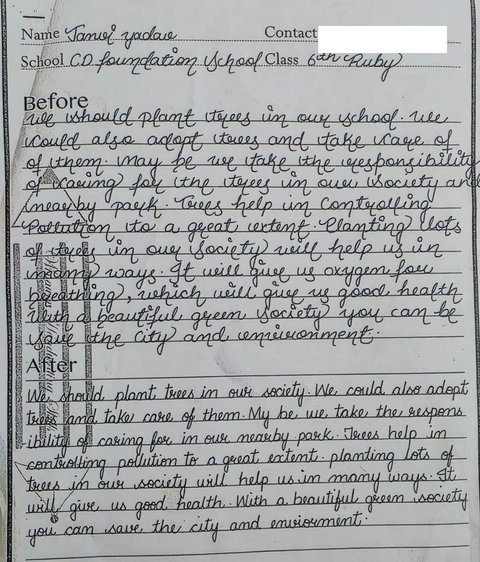 Name Tanvi yadav Contact
School CD foundation School Class 6th Ruby
Before
We should plant trees in our school. We
could also adopt trees and take care of
of them. May be we take the responsibility
of caring for the trees in our society and
nearby park. Trees help in controlling
Pollution to a great extent. Planting lots
of trees in our society will help us in
many ways. It will give us oxygen for
breathing, which will give us good health
With a beautiful green society you can be
save the city and environment.
After
We should plant trees in our society. We could also adopt
trees and take care of them. My be we take the respons
ibility of caring for in our nearby park. Trees help in
controlling pollution to a great extent. planting lots of
trees in our society will help us in many ways. It
will give us good health. With a beautiful green society
you can save the city and enviorment.